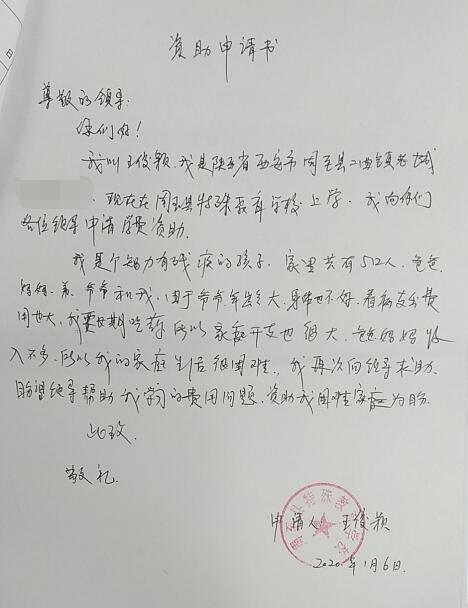 资助申请书
尊敬的领导:
你们好!
我叫王俊颖,我是陕西省西安市周至县二曲镇
现在在周至县特殊教育学校上学,我向你们
各位领导申请学费资助。
我是个智力有残疾的孩子,家里共有5口人,爸爸、
妈妈、爷爷和我,由于爷爷年纪大,身体也不好,看病支出费
用也大,我要长期吃药,所以家庭开支也很大,爸爸妈妈收
入不多,所以我的家庭生活很困难,我再次向领导求助,
盼望领导帮助我学习的费用问题,资助我困难家庭为盼。
此致
敬礼
申请人 王俊颖
2020年1月6日
周至县特殊教育学校